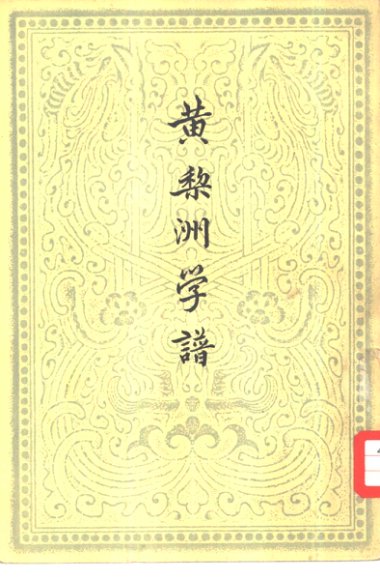 黄梨洲学譜